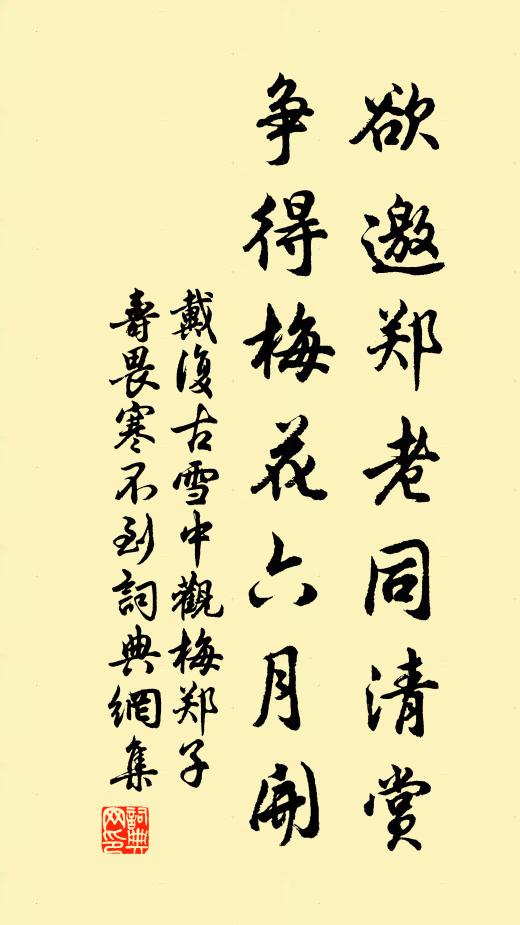 欲邀郑老同清赏
争得梅花六月开
戴復古雪中觀梅郑子
壽畏寒不到詞典網集
詞典
网印